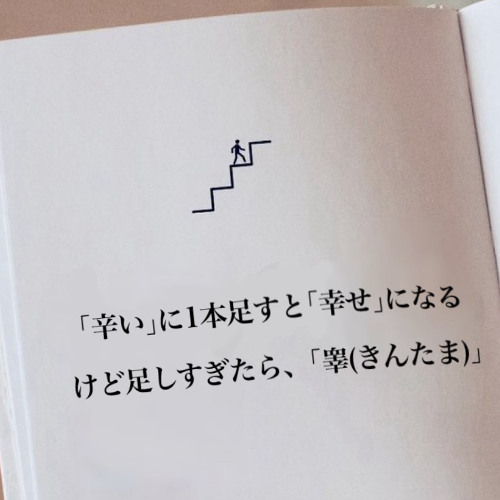 「辛い」に1本足すと「幸せ」になる
けど足しすぎたら、「睾(きんたま)」